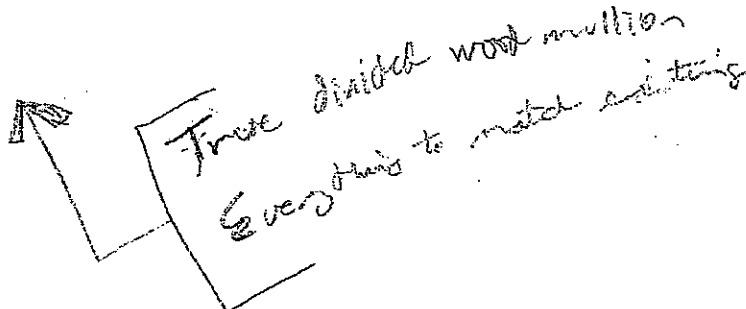 True divided wood mullion
Everything to match existing